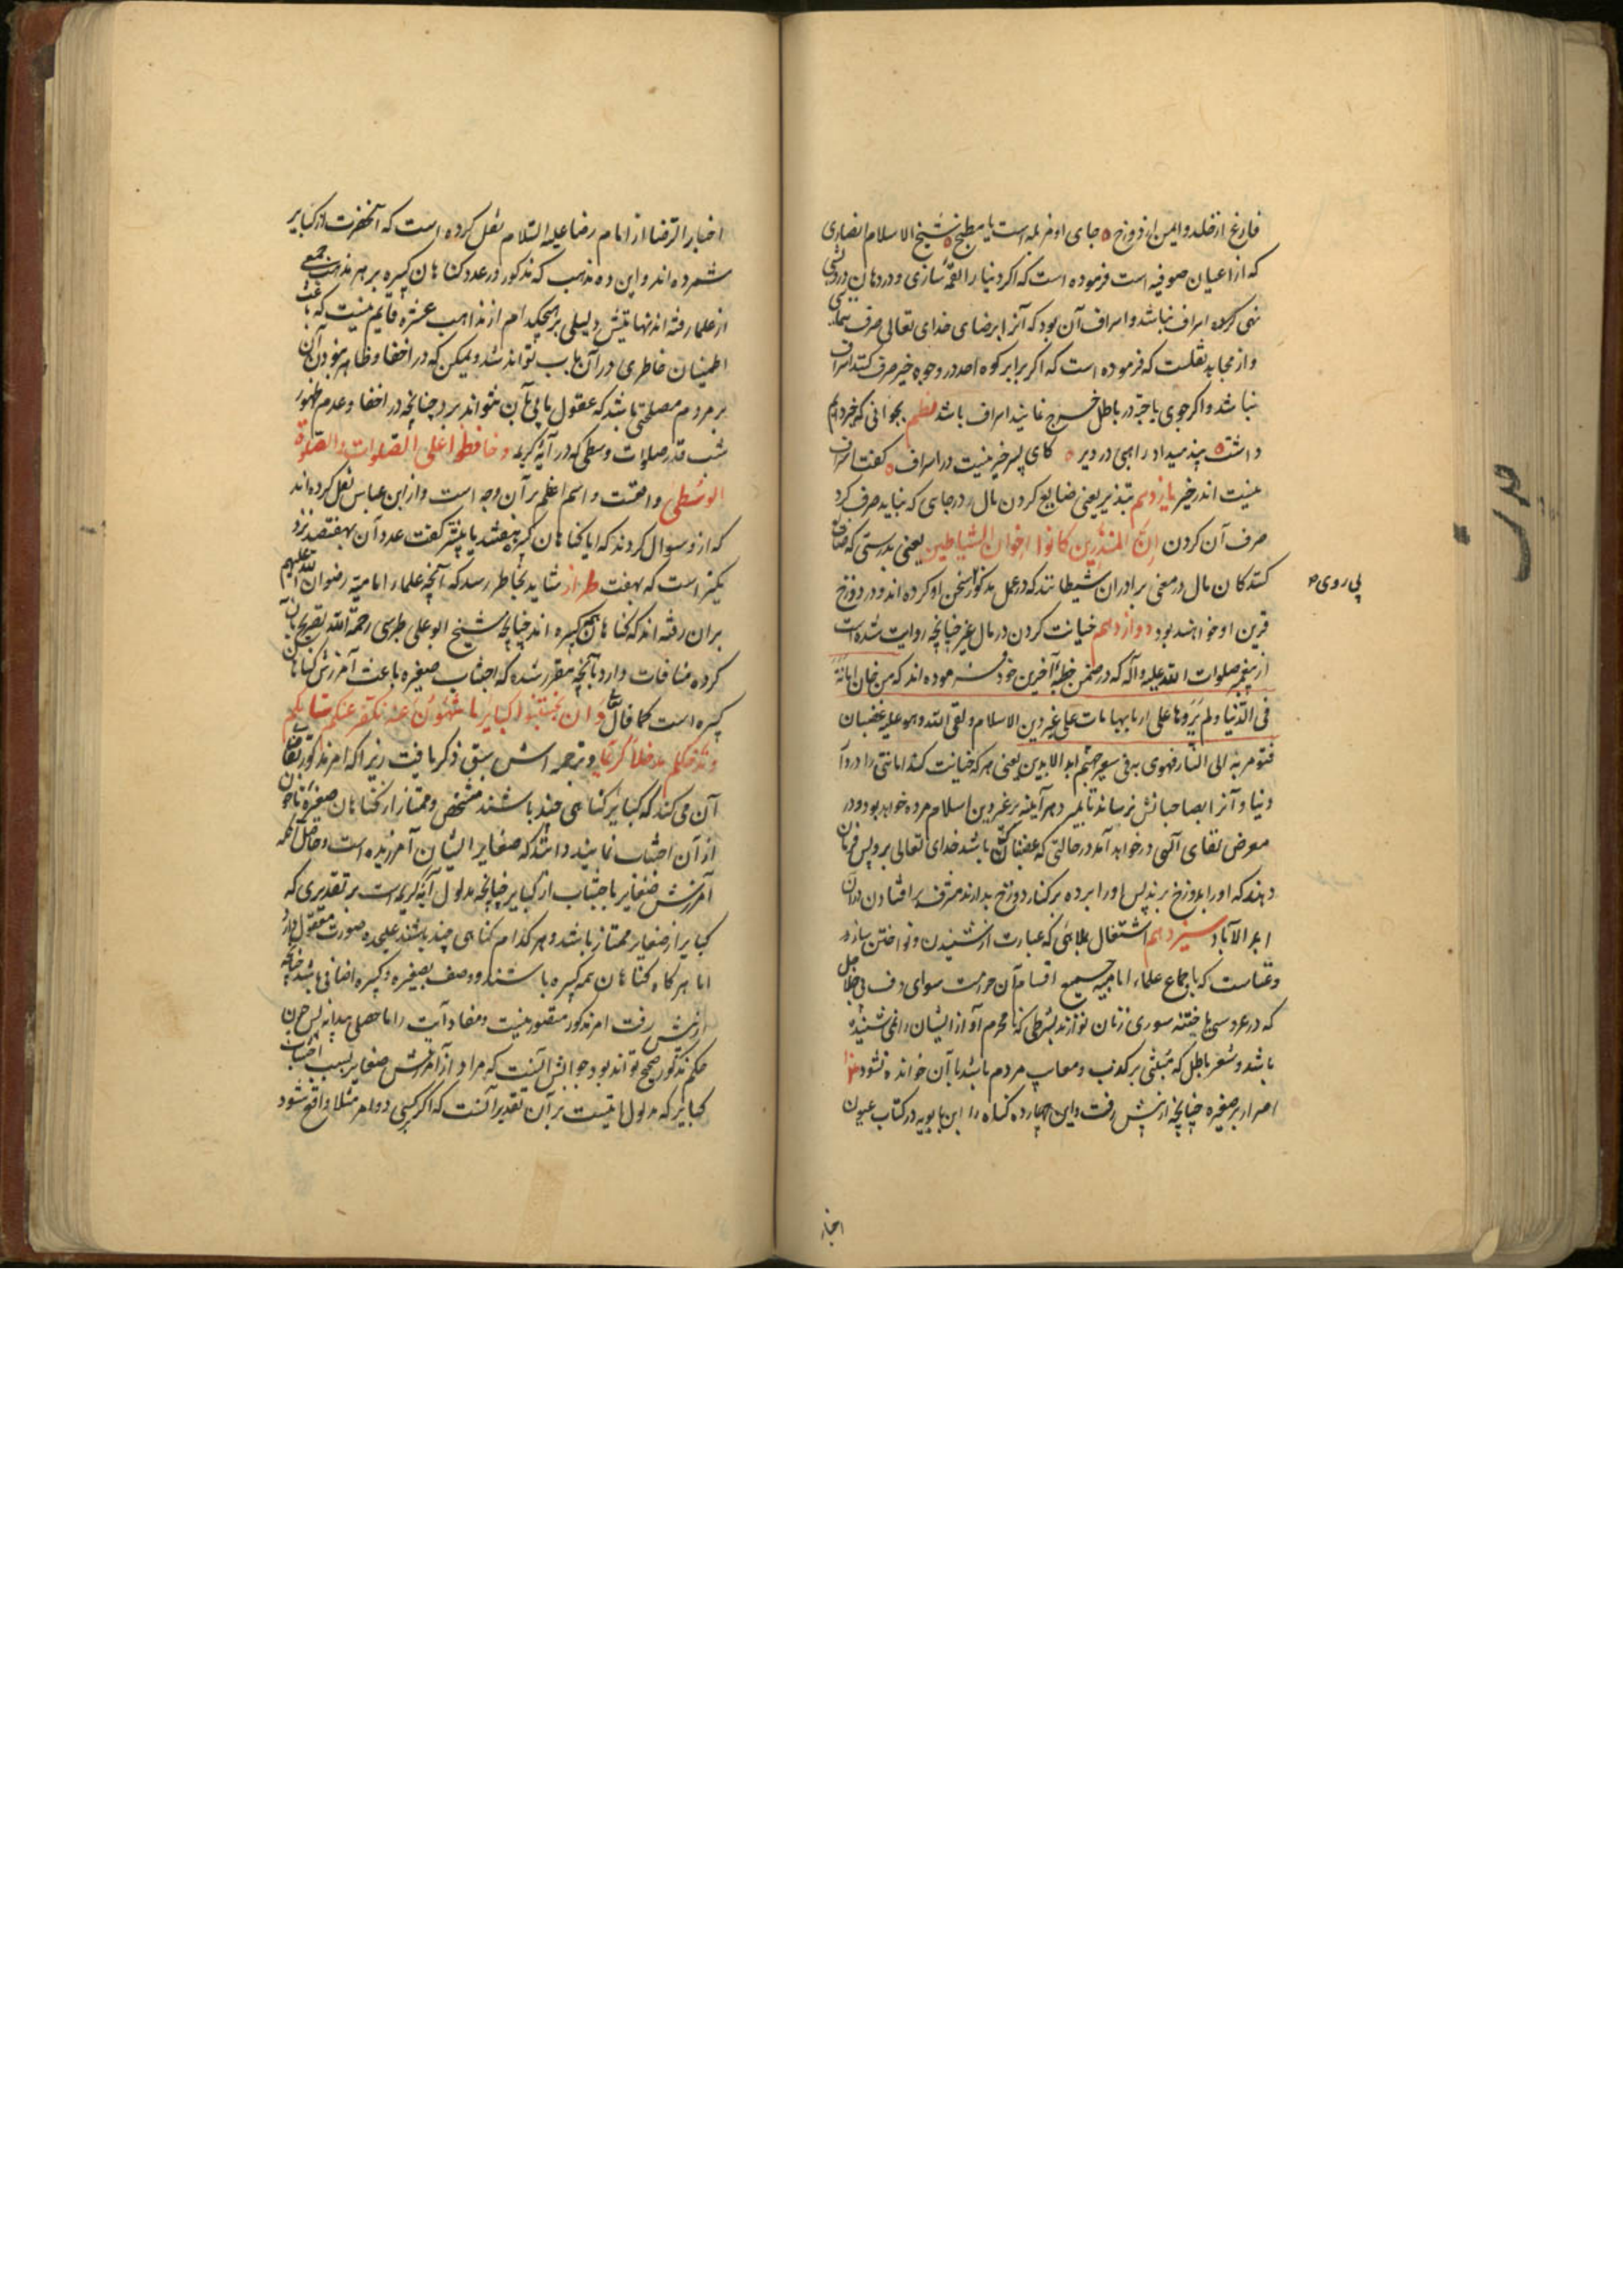 فارغ از خلد و ایمن از دوزخ جای او مزبله است یا مطبخ شیخ الاسلام انصاری
که از اعیان صوفیه است فرموده است که اکر دنیا را لقمه سازی و در دهان درویشی
نهی کرده اسراف نباشد و اسراف آن بود که آنرا برضای خدای تعالی صرف
و از مجاهد نقلست که فرموده است که اکر برابر کوه احد در وجوه خیر صرف کنند اسراف
نباشد و اکر جوی یا حبه در باطل خرج نمایند اسراف باشد نظم بجوانی که خبردایم
داشت پند میداد راهبی در دیر کای پسر خیر نیست در اسراف کفت اسراف
نیست اندر خیر یازدهم تبذیر یعنی ضایع کردن مال در جایی که نباید صرف کرد
صرف آن کردن ان المبذرین کانوا اخوان الشیاطین یعنی بدرستی که ضایع
کنندکان مال در معنی برادران شیطانند که در عمل مذکور سخن او کرده اند و در دوزخ
پی روی
قرین او خواهند بود دوازدهم خیانت کردن در مال غیر چنانچه روایت شده است
از پیغمبر صلوات الله علیه و آله که در ضمن خطبه آخرین خود فرموده اند که من خان امانة
فی الدنیا ولم یردها علی اربابها مات علی غیر دین الاسلام ولقی الله وهو علیه غضبان
فیؤمر به الی النار فیهوی به فی سعیر جهنم ابد الابدین یعنی هر که خیانت کند امانتی را در دار
دنیا و آنرا بصاحبانش نرساند تا بمیرد هر آینه بر غیر دین اسلام مرده خواهد بود و در
معرض لقای آلهی در خواهد آمد در حالتی که غضبناک باشد خدای تعالی برو پس فرمان
دهند که او را بدوزخ برند پس او را برده بر کنار دوزخ بدارند مشرف بر افتادن در آن
ابد الآباد سیزدهم اشتغال بملاهی که عبارت از شنیدن و نواختن ساز
و غناست که باجماع علماء امامیه جمیع اقسام آن حرامست سوای دف بی جلاجل
که در عروسی یا ختنه سوری زنان نوازند بشرطی که نامحرم آواز ایشان را نمی شنیده
باشد و شعر باطل که مبتنی بر کذب و معایب مردم باشد با آن خوانده نشود
اصرار بر صغیره چنانچه از پیش رفت و این چهارده کناه را ابن بابویه در کتاب عیون
اخبار
اخبار الرضا از امام رضا علیه السلام نقل کرده است که آنحضرت از کبایر
شمرده اند و این ده مذهب که مذکور در عدد کناهان کبیره بر هر مذهب جمعی
از علما رفته اند نهایتش دلیلی بر هیچکدام از مذاهب عشره قایم نیست که باعث
اطمینان خاطری در آن باب تواند شد و لیکن که در اخفا و ظاهر نبودن آن
بر مردم مصلحتی باشد که عقول ما پی بآن نتواند برد چنانچه در اخفا و عدم ظهور
شب قدر و صلوات وسطی که در آیه کریمه و حافظوا علی الصلوات والصلوة
الوسطی واقعست و اسم اعظم بر آن وجه است و از ابن عباس نقل کرده اند
که ازو سوال کردند که ایا کناهان کبیره هفتند یا بیشتر کفت عدد آن بهفتصد نزد
یکتر است که بهفت طراز شاید بخاطر رسد که آنچه علماء امامیه رضوان الله علیهم
بران رفته اند که کناهان همه کبیره اند چنانچه شیخ ابو علی طبرسی رحمة الله تصریح بآن
کرده منافات دارد بآنچه مقرر شده که اجتناب صغیره باعث آمرزش کناهان
کبیره است کما قال تع و ان تجتنبوا کبایر ما تنهون عنه نکفر عنکم سیئاتکم
و ندخلکم مدخلا کریما و ترجمه اش سبق ذکر یافت زیرا که امر مذکور تقاضای
آن می کند که کبایر کناهی چند باشند مشخص و ممتاز از کناهان صغیره تا چون
از آن اجتناب نمایند دانند که صغایر ایشان آمرزیده است و حاصل آنکه
آمرزش صغایر باجتناب از کبایر چنانچه مدلول آیه کریمه است بر تقدیری که
کبایر از صغایر ممتاز باشد و هر کدام کناهی چند باشند علیحده صورت معقول دارد
اما هر کاه کناهان همه کبیره باشند و وصف بصغیره و کبیره اضافی باشد چنانچه
از پیش رفت امر مذکور متصور نیست و مفاد آیت را ما حصلی پیدا نه پس چون
حکم مذکور صحیح تواند بود جوابش آنست که مراد از آمرزش صغایر بسبب اجتناب
کبایر که مدلول آیتست بر آن تقدیر آنست که اکر کسی دو امر مثلا واقع شود